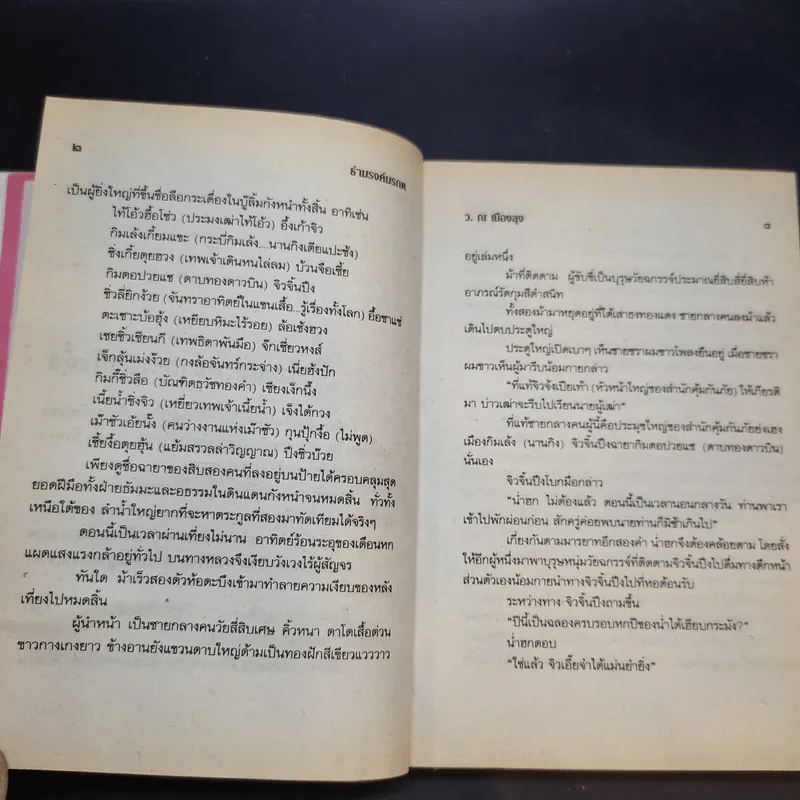 ๒
ธำมรงค์มรกต
เป็นผู้ยิ่งใหญ่ที่ขึ้นชื่อลือกระเดื่องในบู๊ลิ้มกังหนำทั้งสิ้น อาทิเช่น
ไท้โอ้วฮื้อโช่ว (ประมงเฒ่าไท้โอ้ว) อึ้งเก้าจิว
กิมเล้งเกี้ยมแขะ (กระบี่กิมเล้ง....นานกิงเตียแปะซ้ง)
ซิ่งเกี้ยตุยฮวง (เทพเจ้าเดินหนไล่ลม) บ้วนจือเซี้ย
กิมตอปวยแซ (ดาบทองดาวบิน) จิวจิ้นปึง
ซิ่วลี้ยิกง้วย (จันทราอาทิตย์ในแขนเสื้อ...รู้เรื่องทั้งโลก) อื้อซาแซ่
ตะเซาะบ้อฮุ้ง (เหยียบหิมะไร้รอย) ล้อเซ้งฮวง
เชยซิ้วเซียนกี (เทพธิดาพันมือ) จักเซี่ยวหงส์
เจ็กลุ้นเม่งง้วย (กงล้อจันทร์กระจ่าง) เนี่ยฮังปัก
กิมกี๊ซิ่วสือ (บัณฑิตธวัชทองคำ) เซียงเง็กนึ้ง
เนี้ยน้ำซิ่งจิว (เหยี่ยวเทพเจ้าเนี้ยน้ำ) เจ็งไต้กวง
เม๊าซัวเอ้ยนั้ง (คนว่างงานแห่งเม๊าซัว) กุนปุ๊กงื้อ (ไม่พูด)
เซี้ยงื้อตุยฮุ้น (แย้มสรวลล่าวิญญาณ) ปึงซิ่วบ๊วย
เพียงดูชื่อฉายาของสิบสองคนที่ลงอยู่บนป้ายได้ครอบคลุมสุด
ยอดฝีมือทั้งฝ่ายธัมมะและอธรรมในดินแดนกังหนำจนหมดสิ้น ทั่วทั้ง
เหนือใต้ของ ลำน้ำใหญ่ยากที่จะหาตระกูลที่สองมาทัดเทียมได้จริงๆ
ตอนนี้เป็นเวลาผ่านเที่ยงไม่นาน อาทิตย์ร้อนระอุของเดือนหก
แผดแสงแรงกล้าอยู่ทั่วไป บนทางหลวงจึงเงียบวังเวงไร้ผู้สัญจร
ทันใด ม้าเร็วสองตัวห้อตะบึงเข้ามาทำลายความเงียบของหลัง
เที่ยงไปหมดสิ้น
ผู้นำหน้า เป็นชายกลางคนวัยสี่สิบเศษ คิ้วหนา ตาโตเสื้อต่วน
ขาวกางเกงยาว ข้างอานยังแขวนดาบใหญ่ด้ามเป็นทองฝักสีเขียวแวววาว
ว. ณ เมืองลุง
๓
อยู่เล่มหนึ่ง
ม้าที่ติดตาม ผู้ขับขี่เป็นบุรุษวัยฉกรรจ์ประมาณยี่สิบสี่ยี่สิบห้า
อาภรณ์รัดกุมสีดำสนิท
ทั้งสองม้ามาหยุดอยู่ที่ใต้เสาธงทองแดง ชายกลางคนลงม้าแล้ว
เดินไปตบประตูใหญ่
ประตูใหญ่เปิดเบาๆ เห็นชายชราผมขาวโพลงยืนอยู่ เมื่อชายชรา
ผมขาวเห็นผู้มารีบน้อมกายกล่าว
"ที่แท้จิวจั้งเปียเท้า (หัวหน้าใหญ่ของสำนักคุ้มกันภัย) ให้เกียรติ
มา บ่าวเฒ่าจะรีบไปเรียนนายผู้เฒ่า"
ที่แท้ชายกลางคนผู้นี้คือประมุขใหญ่ของสำนักคุ้มกันภัยย่งเฮง
เมืองกิมเล้ง (นานกิง) จิวจิ้นปึงฉายากิมตอปวยแซ (ดาบทองดาวบิน)
นั่นเอง
จิวจิ้นปึงโบกมือกล่าว
"น่ำฮก ไม่ต้องแล้ว ตอนนี้เป็นเวลานอนกลางวัน ท่านพาเรา
เข้าไปพักผ่อนก่อน สักครู่ค่อยพบนายท่านก็มิช้าเกินไป"
เกี่ยงกันตามมารยาทอีกสองคำ น่ำฮกจึงต้องคล้อยตาม โดยสั่ง
ให้อีกผู้หนึ่งมาพาบุรุษหนุ่มวัยฉกรรจ์ที่ติดตามจิวจิ้นปึงไปดื่มทางตึกหน้า
ส่วนตัวเองน้อมกายนำทางจิวจิ้นปึงไปที่หอต้อนรับ
ระหว่างทาง จิวจิ้นปึงถามขึ้น
"ปีนี้เป็นฉลองครบรอบหกปีของน่ำไต้เฮียบกระมัง?"
น่ำฮกตอบ
"ใช่แล้ว จิวเอี้ยจำได้แม่นยำยิ่ง"